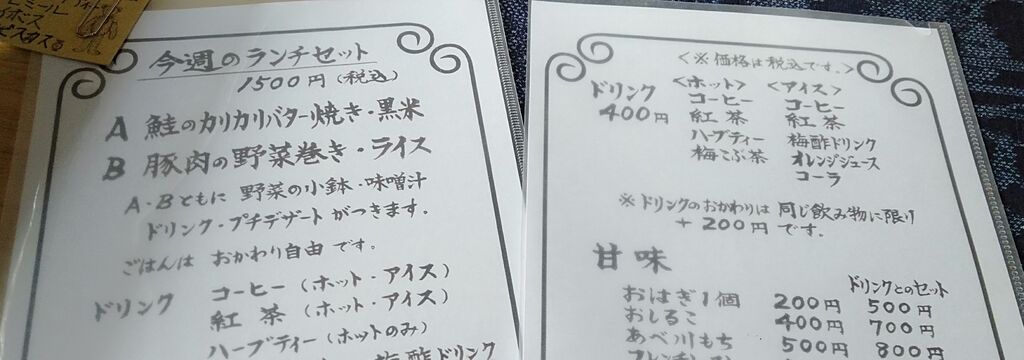 今週のランチセット
1500円(税込)
A 鮭のカリカリバター焼き・黒米
B 豚肉の野菜巻き・ライス
A・Bともに 野菜の小鉢・味噌汁
ドリンク・プチデザートがつきます。
ごはんは おかわり自由です。
ドリンク コーヒー(ホット・アイス)
紅茶(ホット・アイス)
ハーブティー(ホットのみ)
梅酢ドリンク
<※価格は税込です。>
ドリンク <ホット> <アイス>
400円 コーヒー コーヒー
紅茶 紅茶
ハーブティー 梅酢ドリンク
梅こぶ茶 オレンジジュース
コーラ
※ドリンクのおかわりは 同じ飲み物に限り
+200円です。
甘味
ドリンクとのセット
おはぎ1個 200円 500円
おしるこ 400円 700円
あべ川もち 500円 800円